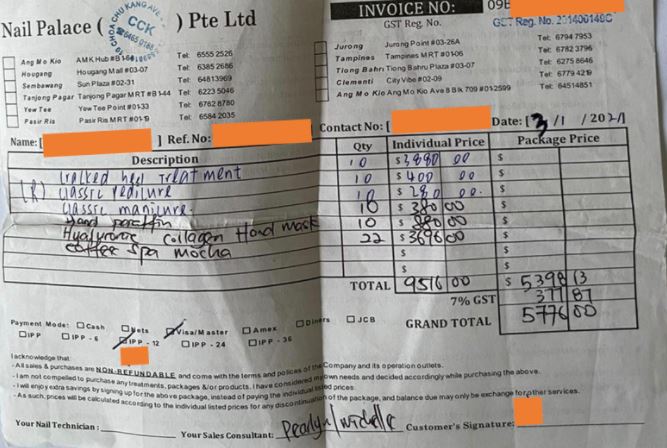 Nail Palace ( ) Pte Ltd
CHOA CHU KANG AVE
CCK
INVOICE NO: 09E
GST Reg. No. GST Reg. No. 201400149C
Ang Mo Kio AMK Hub #B1- Tel: 6555 2526
Hougang Hougang Mall #03-07 Tel: 6385 2686
Sembawang Sun Plaza #02-31 Tel: 64813969
Tanjong Pagar Tanjong Pagar MRT #B1-44 Tel: 6223 5046
Yew Tee Yew Tee Point #01-33 Tel: 6762 8780
Pasir Ris Pasir Ris MRT #01-19 Tel: 6584 2035
Jurong Jurong Point #03-26A Tel: 6794 7953
Tampines Tampines MRT #01-06 Tel: 6782 3796
Tiong Bahru Tiong Bahru Plaza #03-07 Tel: 6275 8646
Clementi City Vibe #02-09 Tel: 6779 4219
Ang Mo Kio Ang Mo Kio Ave 8 Blk 709 #012599 Tel: 64514851
Name: [ ] Ref. No: Contact No: [ Date: [3/1/2021
Description Qty Individual Price Package Price
Cracked heel Treatment 10 $3880 00 $
(R) Classic Pedicure 10 $400 00 $
Classic manicure. 10 $280 00. $
Hand paraffin 10 $380 00 $
Hyaluronic collagen Hand mask 10 $880 00 $
coffee spa mocha 22 $3696 00 $
$ $
$ $
TOTAL 9516 00 $ 5398 13
7% GST 377 87
GRAND TOTAL 5776 00
Payment Mode: Cash Nets Visa/Master Amex Diners JCB
IPP IPP - 6 IPP - 12 IPP - 24 IPP - 36
I acknowledge that:
- All sales & purchases are NON-REFUNDABLE and come with the terms and polices of the Company and its operation outlets.
- I am not compelled to purchase any treatments, packages &/or products. I have considered my own needs and decided accordingly while purchasing the above.
- I will enjoy extra savings by signing up for the above package, instead of paying the individual listed prices.
- As such, prices will be calculated according to the individual listed prices for any discontinuation of the package, and balance due may only be exchange for other services.
Your Nail Technician : Your Sales Consultant: Pearlyn/michelle Customer's Signature: